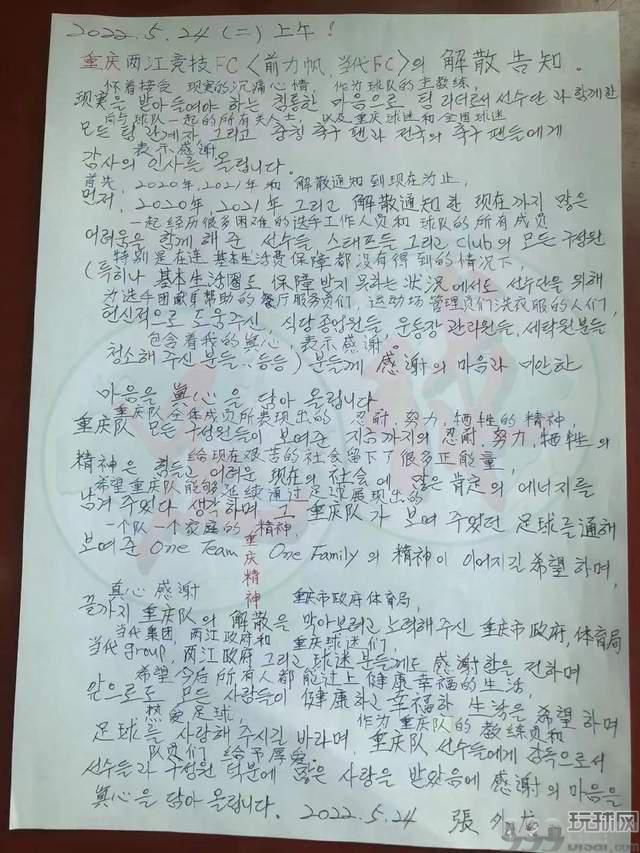 2022.5.24 (二) 上午!
重庆 两江竞技FC〈前力帆, 当代FC〉의 解散告知.
怀着接受 现实的沉痛心情, 作为球队的主教练,
现实을 받아들여야 하는 침통한 마음으로 팀 리더로서 선수단과 함께한
向与球队一起的所有人士, 以及重庆球迷和全国球迷
모든 팀 관계자, 그리고 충칭 축구 팬과 전국의 축구 팬들에게
表示感谢
감사의 인사를 올립니다.
首先, 2020年, 2021年 和 解散通知到现在为止,
먼저, 2020年, 2021年 그리고 解散通知한 现在까지 많은
一起经历很多困难的选手工作人员和 球队的所有成员
어려움을 함께 해 준 선수들, 스태프들 그리고 Club의 모든 구성원
特别是在连 基本生活费保障都没有得到的情况下,
(특히나 基本生活圈도 保障받지 못하는 状况에서도 선수단을 위해
为选手团献身帮助的餐厅服务员们, 运动场管理员们洗衣服的人们,
헌신적으로 도움주신, 식당종업원들, 운동장 관리원들, 세탁원분들
包含着我的真心 表示感谢.
청소해 주신 분들..등등) 분들게 感谢의 마음과 미안한
마음을 真心을 담아 올립니다
重庆队全体成员所表现出的 忍耐.努力.牺牲的精神,
重庆队 모든 구성원들이 보여준 지금까지의 忍耐.努力.牺牲의
给现在艰苦的社会留下了很多正能量,
精神은 힘들고 어려운 现在의 社会에 많은 肯定의 에너지를
希望重庆队能够延续通过足球展现出的
남겨 주었다 생각하며 그 重庆队가 보여 주었던 足球를 通해
一个队一个家庭的 精神,
보여준 One Team One Family의 精神이 이어지길 希望하며,
重庆精神
真心 感谢 重庆市政府体育局,
끝까지 重庆队의 解散을 막아보려고 노력해 주신 重庆市政府, 体育局
当代集团, 两江政府和 重庆球迷们,
当代group, 两江政府 그리고 球迷 분들께도 感谢함을 전하며
希望今后所有人都能过上健康幸福的生活,
앞으로도 모든 사람들이 健康하고 幸福한 生活을 希望하며
热爱足球, 作为重庆队的教练员和
足球를 사랑해 주시길 바라며, 重庆队 선수들에게 감독으로서
队员们 给予厚爱.
선수들과 구성원 덕분에 많은 사랑을 받았음에 感谢의 마음을
真心을 담아 올립니다. 2022.5.24 張外龙
玩球网